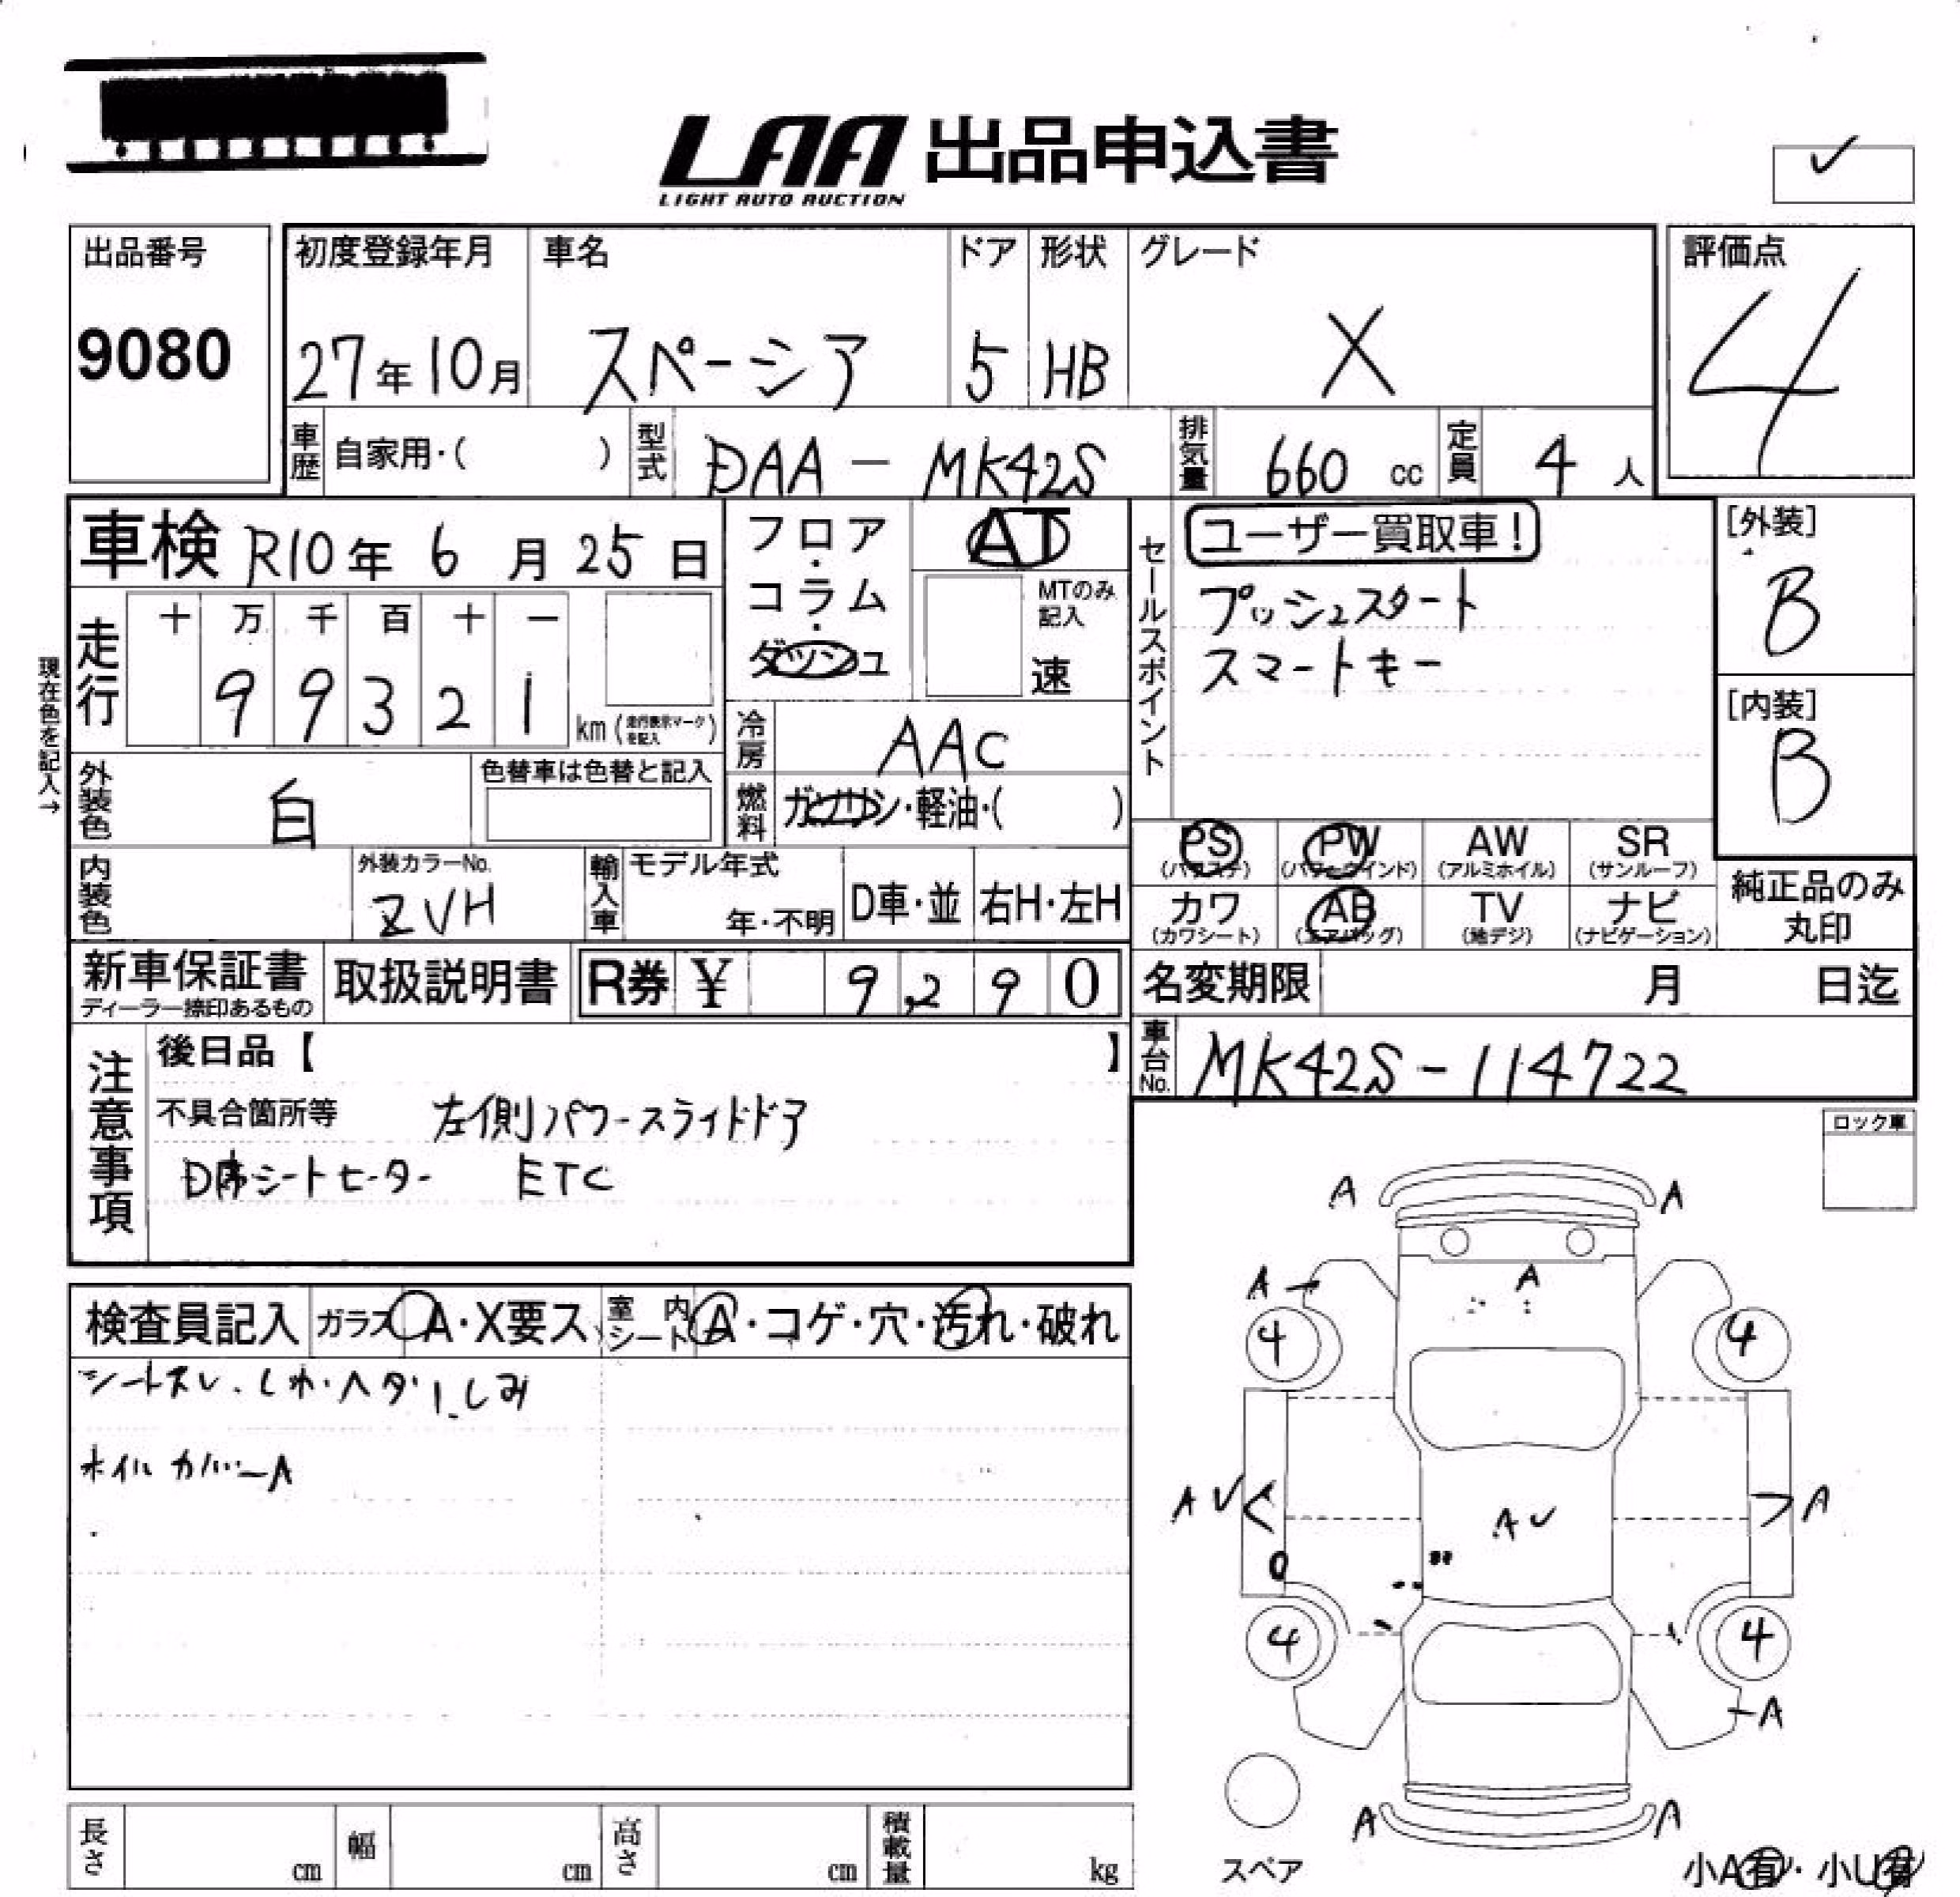 LAA 出品申込書
LIGHT AUTO AUCTION
✓
出品番号
9080
初度登録年月 車名 ドア 形状 グレード
27年10月 スペーシア 5 HB X
評価点
4
車歴 自家用・( ) 型式 DAA - MK42S 排気量 660 cc 定員 4 人
車検 R10年 6 月 25 日
フロア・コラム・ダッシュ
AT
MTのみ記入
速
セールスポイント
ユーザー買取車!
プッシュスタート
スマートキー
[外装]
B
[内装]
B
現在色を記入→
走行 十 万 千 百 十 一
9 9 3 2 1 km (走行表示マークを記入)
冷房 AAC
外装色 白 色替車は色替と記入
燃料 ガソリン・軽油・( )
内装色 外装カラーNo. ZVH
輸入車 モデル年式 年・不明 D車・並 右H・左H
PS (パワステ) PW (パワーウインド) AW (アルミホイル) SR (サンルーフ)
カワ (カワシート) AB (エアバッグ) TV (地デジ) ナビ (ナビゲーション)
純正品のみ丸印
新車保証書 ディーラー捺印あるもの 取扱説明書 R券 ¥ 9,290
名変期限 月 日迄
車台No. MK42S-114722
注意事項
後日品【 】
不具合箇所等 左側パワースライドドア
D席シートヒーター ETC
ロック車
検査員記入 ガラス A・X要ス 室内シート A・コゲ・穴・汚れ・破れ
シートスレ、しわ・ヘタリ、しみ
ホイルカバーA
A A
A A
4 4
A V A V A
4 4
A
A A
スペア
小A有・小U有
長さ cm 幅 cm 高さ cm 積載量 kg